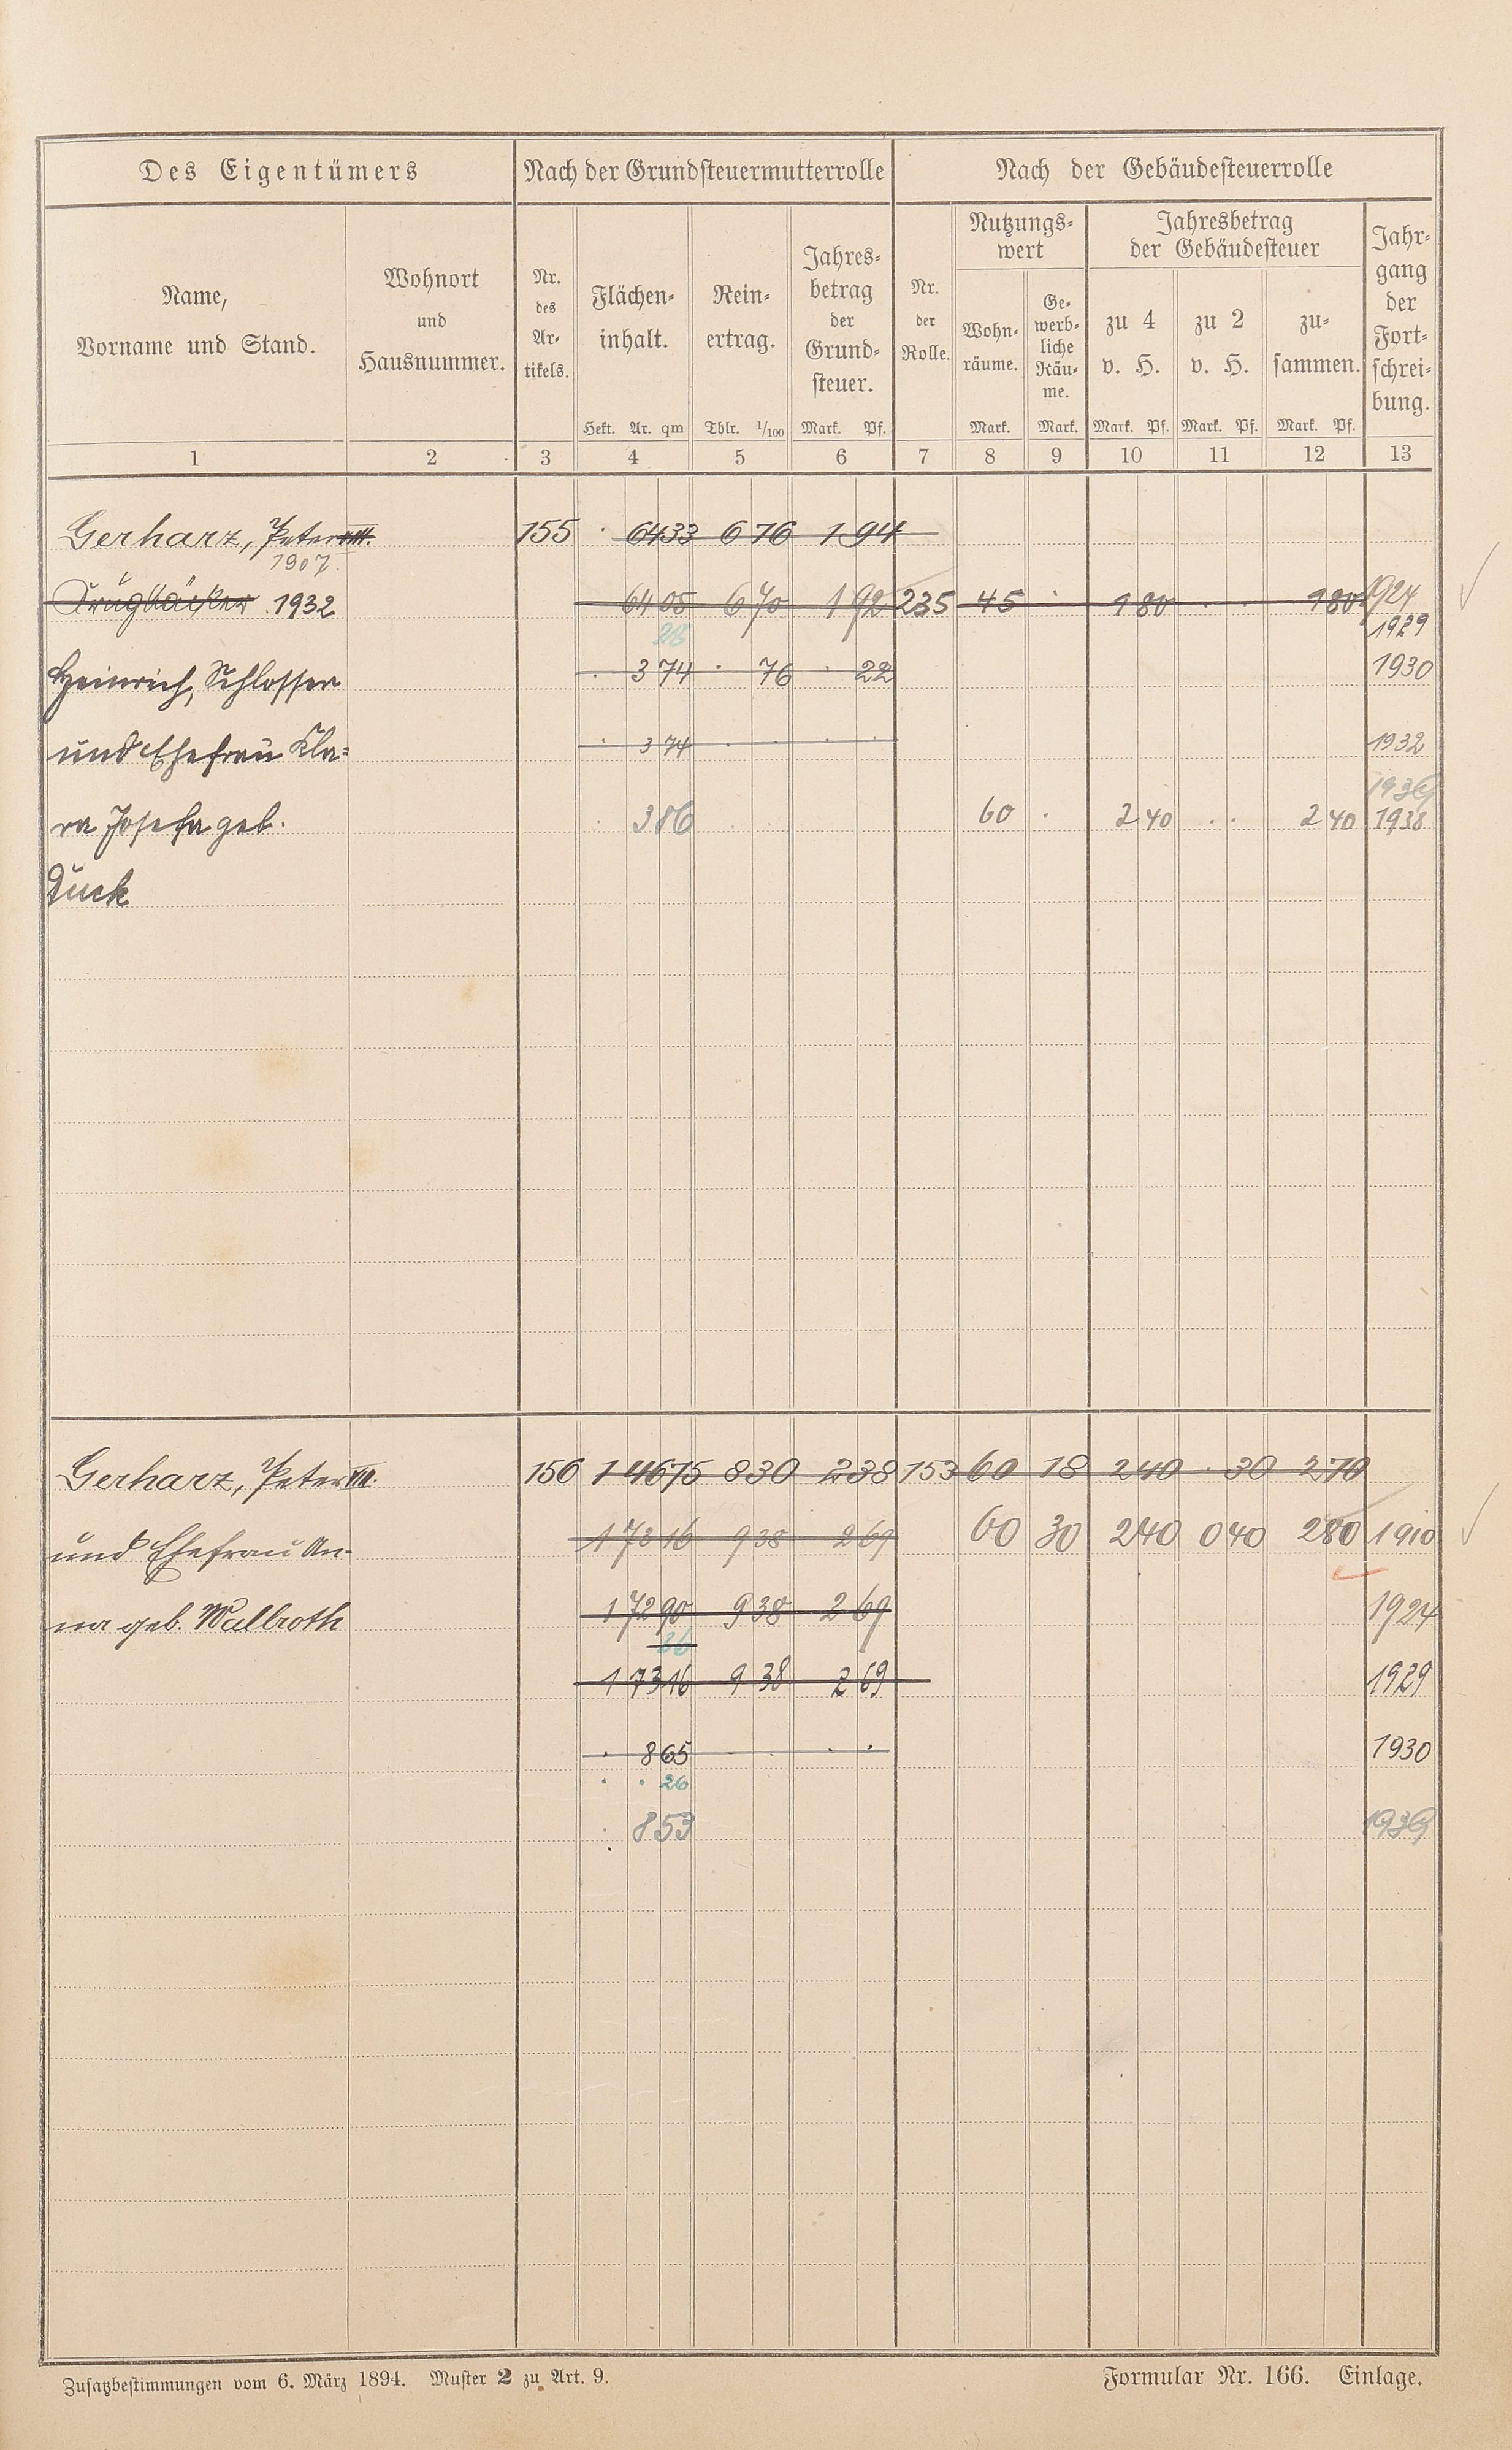 Des Eigentümers
Nach der Grundsteuermutterrolle
Nach der Gebäudesteuerrolle
Name,
Vorname und Stand.
Wohnort
und
Hausnummer.
Nr.
des
Ar-
tikels.
Flächen-
inhalt.
Hekt. Ar. qm
Rein-
ertrag.
Thlr. 1/100
Jahres-
betrag
der
Grund-
steuer.
Mark. Pf.
Nr.
der
Rolle.
Nutzungs-
wert
Wohn-
räume.
Mark.
Ge-
werb-
liche
Räu-
me.
Mark.
Jahresbetrag
der Gebäudesteuer
zu 4
v. H.
Mark. Pf.
zu 2
v. H.
Mark. Pf.
zu-
sammen.
Mark. Pf.
Jahr-
gang
der
Fort-
schrei-
bung.
1 2 3 4 5 6 7 8 9 10 11 12 13
Gerharz, Peter VIII. 155 · 64 33 6 76 1 94
1907.
Krugbäcker 1932 64 05 6 70 1 92 235 45 · 1 80 · · 1 80 1924
1929
Heinrich, Schlosser · 3 74 · 76 · 22 1930
und Ehefrau Kla= · 3 74 · · · · 1932
1936
ra Josefa geb. · 3 86 · · · · 60 · 2 40 · · 2 40 1938
Duck
Gerharz, Peter VII. 156 1 46 75 8 30 2 38 153 60 18 2 40 · 30 2 70
und Ehefrau An- 1 73 16 9 38 2 69 60 30 2 40 0 40 2 80 1910
na geb. Wallroth 1 72 90 9 38 2 69 1924
26
1 73 16 9 38 2 69 1929
· 8 65 · · · · 1930
· · 26
· 8 53 1936
Zusatzbestimmungen vom 6. März 1894. Muster 2 zu Art. 9.
Formular Nr. 166. Einlage.